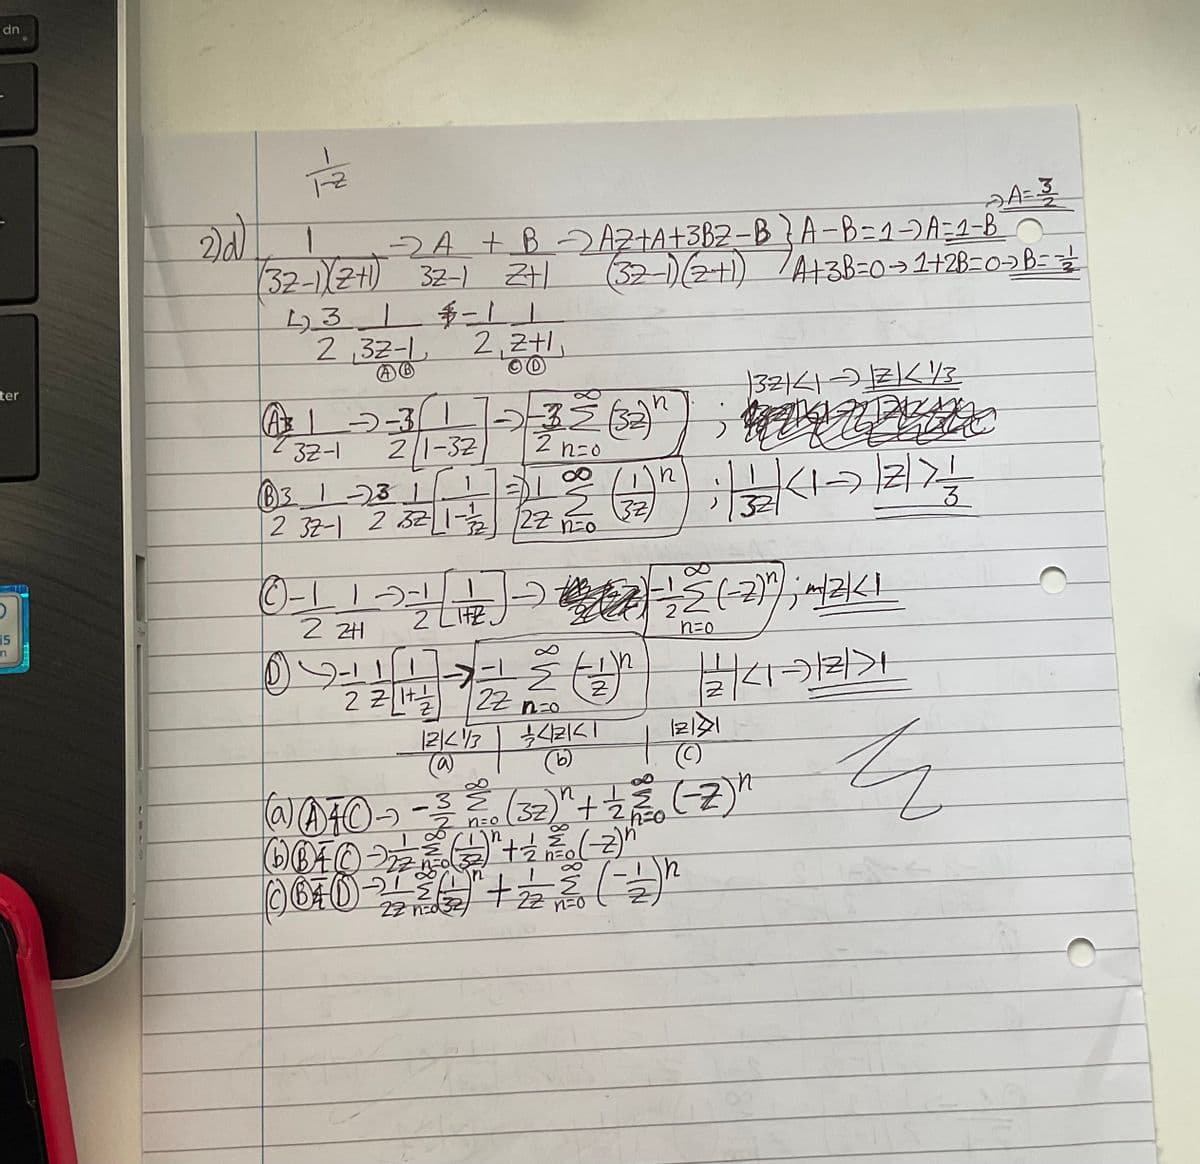 dn
ter
i5
1/(1-z)
2)d) 1/((3z-1)(z+1)) → A/(3z-1) + B/(z+1) → (Az+A+3Bz-B)/((3z-1)(z+1)) } A-B=1 → A=1-B → A=3/2
A+3B=0 → 1+2B=0 → B=-1/2
↳ 3/2 1/(3z-1) -1/2 1/(z+1)
Ⓐ Ⓑ Ⓒ Ⓓ
|3z|<1 → |z|<1/3
Ⓐ 3/2 1/(3z-1) → -3/2 [1/(1-3z)] → -3/2 ∞Σn=0 (3z)^n ;
Ⓑ 3/2 1/(3z-1) → 3/2 1/3z [1/(1-1/3z)] ⇒ 1/2z ∞Σn=0 (1/3z)^n ; |1/3z|<1 → |z|>1/3
Ⓒ -1/2 1/(z+1) → -1/2 [1/(1+z)] → -1/2 ∞Σn=0 (-z)^n ; |z|<1
Ⓓ → -1/2 1/z [1/(1+1/z)] → -1/2z ∞Σn=0 (-1/z)^n |1/z|<1 → |z|>1
|z|<1/3 | 1/3<|z|<1 | |z|>1
(a) (b) (c)
(a) Ⓐ + Ⓒ → -3/2 ∞Σn=0 (3z)^n + 1/2 ∞Σn=0 (-z)^n
(b) Ⓑ + Ⓒ → 1/2z ∞Σn=0 (1/3z)^n + 1/2 ∞Σn=0 (-z)^n
(c) Ⓑ + Ⓓ → 1/2z ∞Σn=0 (1/3z)^n + 1/2z ∞Σn=0 (-1/z)^n